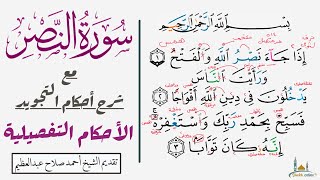 سورة النصر
مع
شرح أحكام التجويد
الأحكام التفصيلية
تقديم الشيخ أحمد صلاح عبدالعظيم
بِسْمِ اللَّهِ الرَّحْمَٰنِ الرَّحِيمِ
إِذَا جَآءَ نَصْرُ اللَّهِ وَالْفَتْحُ ١
وَرَأَيْتَ النَّاسَ
يَدْخُلُونَ فِي دِينِ اللَّهِ أَفْوَاجًا ٢
فَسَبِّحْ بِحَمْدِ رَبِّكَ وَاسْتَغْفِرْهُ
إِنَّهُ كَانَ تَوَّابًا ٣